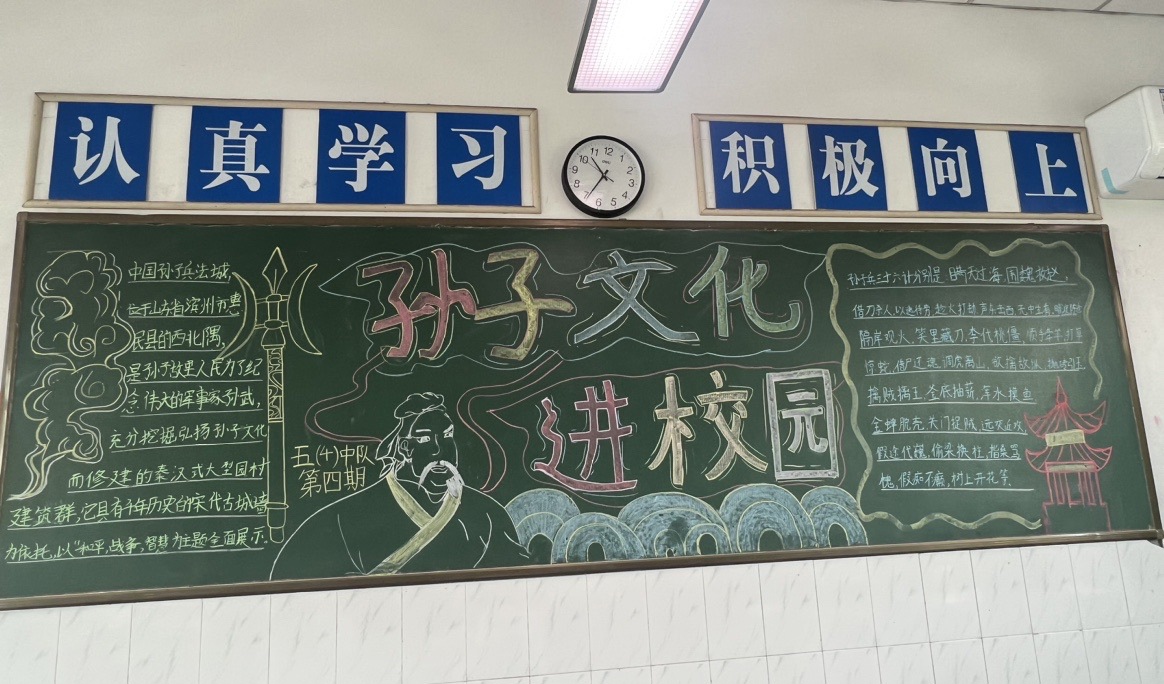 认真学习
积极向上
12
1
2
3
4
5
6
7
8
9
10
11
孙子文化
进校园
五(十)中队
第四期
中国孙子兵法城,
位于山东省滨州市惠
民县的西北隅,
是孙子故里人民为了纪
念伟大的军事家孙武,
充分挖掘弘扬孙子文化
而修建的秦汉式大型园村
建筑群,它具有千年历史的宋代古城墙
为依托,以"和平,战争,智慧"为主题全面展示.
孙兵三十六计分别是 瞒天过海,围魏救赵,
借刀杀人 以逸待劳 趁火打劫 声东击西 无中生有
隔岸观火、笑里藏刀、李代桃僵、顺手牵羊、打草
惊蛇、借尸还魂、调虎离山、欲擒故纵
擒贼擒王、釜底抽薪、浑水摸鱼
金蝉脱壳、关门捉贼、远交近攻
假途代虢、偷梁换柱、指桑骂
槐、假痴不癫、树上开花等.